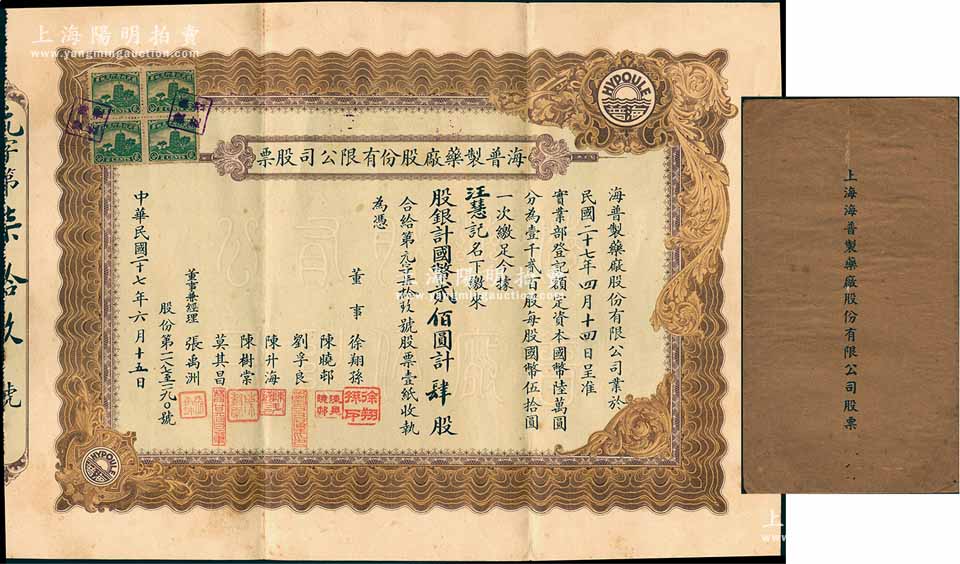 上海陽明拍賣
www.yangmingauction.com
HYPOULE
海普
海普製藥廠股份有限公司股票
海普製藥廠股份有限公司業於
民國二十七年四月十四日呈准
實業部登記額定資本國幣陸萬圓
分為壹千貳百股每股國幣伍拾圓
一次繳足今據
汪慧記名下繳來
股銀計國幣貳佰圓計肆股
合給第元字柒拾玖號股票壹紙收執
為憑
董事
徐翔孫
陳曉邨
劉孚良
陳升海
陳樹棠
莫其昌
董事兼經理 張禹洲
股份第二八七至二九〇號
中華民國二十七年六月十五日
元字第柒拾玖號
HYPOULE
上海陽明拍賣
上海海普製藥廠股份有限公司股票